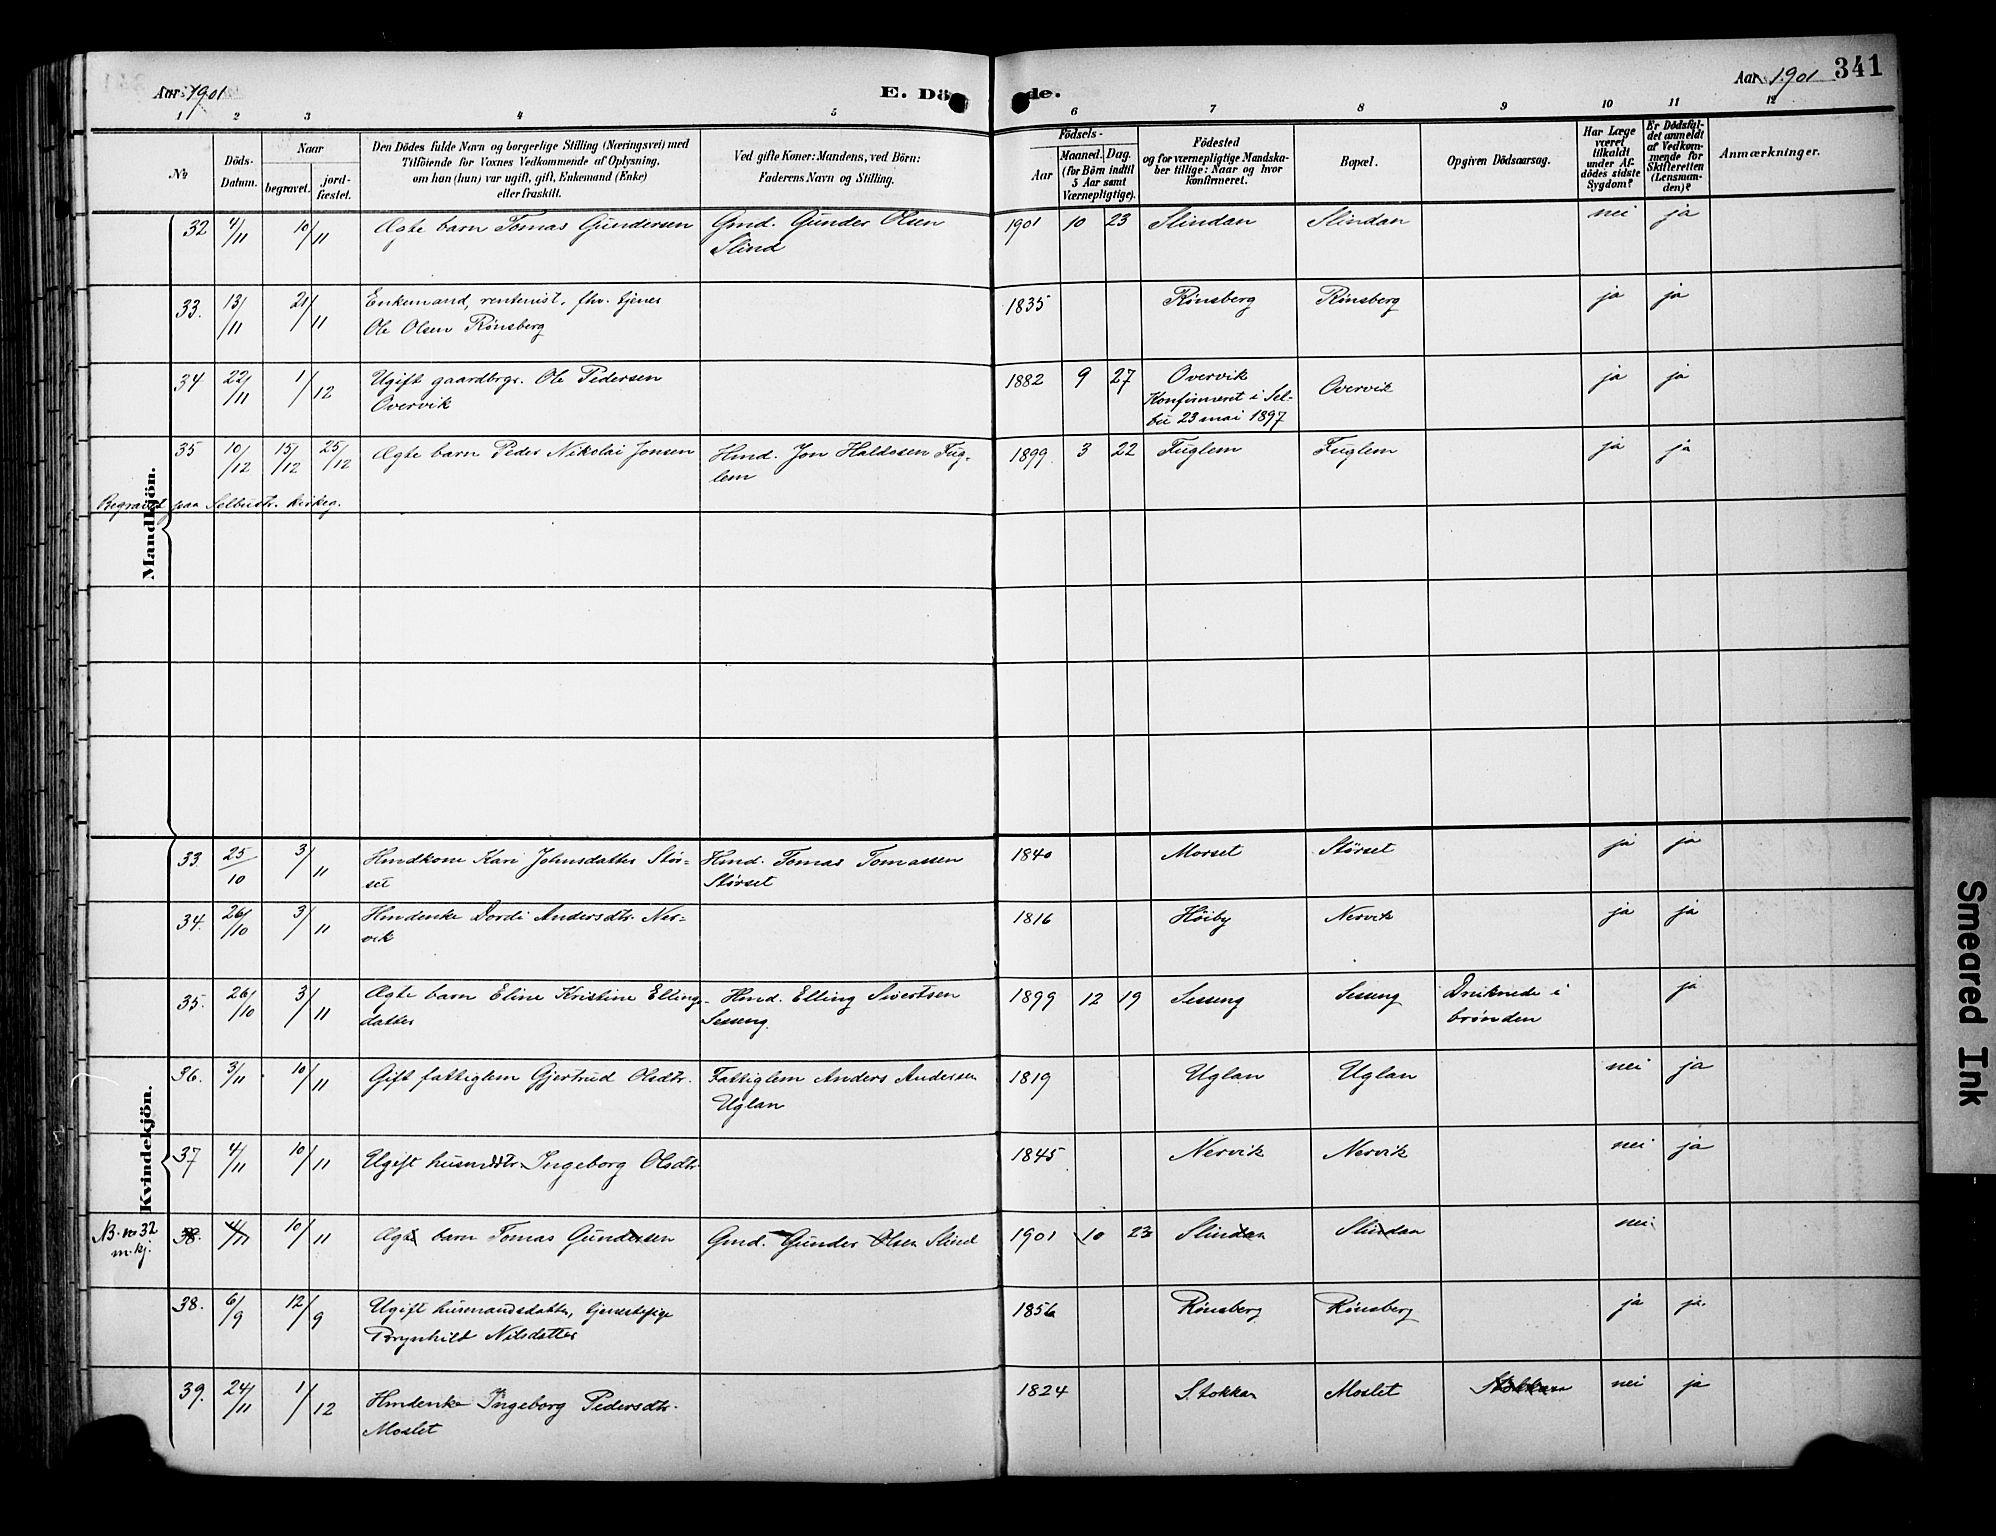 Aar 1901
E. Döde.
Aar 1901 341
1 2 3 4 5 6 7 8 9 10 11 12
No
Döds-Datum.
Naar
begravet.
jord-fæstet.
Den Dödes fulde Navn og borgerlige Stilling (Næringsvei) med
Tilföiende for Voxnes Vedkommende af Oplysning,
om han (hun) var ugift, gift, Enkemand (Enke)
eller fraskilt.
Ved gifte Koner: Mandens, ved Börn:
Faderens Navn og Stilling.
Födsels-
Aar
Maaned. Dag.
(for Börn indtil
5 Aar samt
Værnepligtige).
Födested
og for værnepligtige Mandska-
ber tillige: Naar og hvor
konfirmeret.
Bopæl.
Opgiven Dödsaarsag.
Har Læge
været
tilkaldt
under Af-
dödes sidste
Sygdom?
Er Dödsfal-
det anmeldt
af Vedkom-
mende for
Skifteretten
(Lensman-
den)?
Anmærkninger.
Mandkjön.
32 4/11 10/11 Ægte barn Tomas Gundersen Gmd. Gunder Olsen 1901 10 23 Slindan Slindan nei ja
Slind
33. 13/11 21/11 Enkemand, rentenist, fhv. tjener 1835 Rönsberg Rönsberg ja ja
Ole Olsen Rönsberg
34 22/11 1/12 Ugift gaardbrgr. Ole Pedersen 1882 9 27 Overvik Overvik ja ja
Overvik Konfirmeret i Sel-
bu 23 mai 1897
35 10/12 15/12 25/12 Ægte barn Peder Nikolai Jonsen Hmd. Jon Haldosen Fug- 1899 3 22 Fuglem Fuglem ja ja
lem
Begravet paa Selbustr. kirkeg.
Kvindekjön.
33. 25/10 3/11 Hmdkone Kari Johnsdatter Stör- Hmd. Tomas Tomassen 1840 Morset Störset ja ja
set Störset
34. 26/10 3/11 Hmdenke Dordi Andersdtr. Ner- 1816 Höiby Nervik ja ja
vik
35. 26/10 3/11 Ægte barn Eline Kristine Ellings- Hmd. Elling Sivertsen 1899 12 19 Sesseng Sesseng Druknede i ja
datter Sesseng. brönden
36. 3/11 10/11 Gift fattiglem Gjertrud Olsdtr. Fattiglem Anders Andersen 1819 Uglan Uglan nei ja
Uglan
37 4/11 10/11 Ugift husmdsdtr. Ingeborg Olsdtr. 1845 Nervik Nervik nei ja
No 32
m.kj.
38. 4/11 10/11 Ægte barn Tomas Gundersen Gmd. Gunder Olsen Slind 1901 10 23 Slindan Slindan nei
38. 6/9 12/9 Ugift husmandsdatter, tjenestepige 1856 Rönsberg Rönsberg ja ja.
Brynhild Nilsdatter
39. 24/11 1/12 Hmdenke Ingeborg Pedersdtr. 1824 Stokkan Moslet Stokkan nei ja
Moslet
Smeared Ink